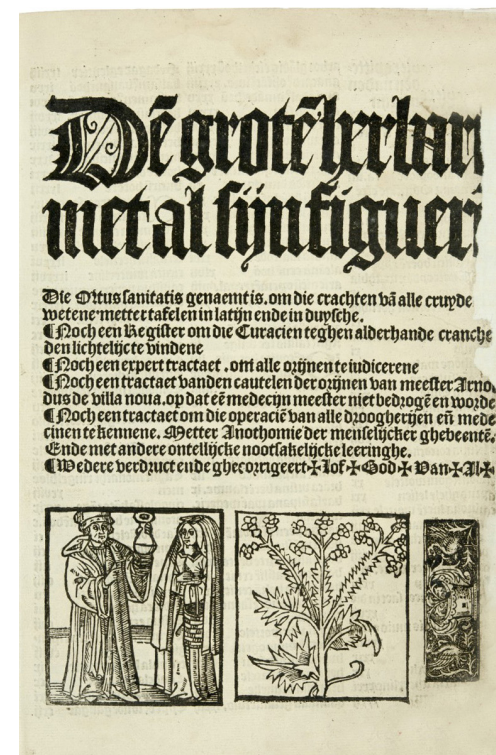 Dē grotē herbari
met al sijn figuerē
Die Ortus sanitatis genaemt is. om die crachten vā alle cruyde
wetene mettet tafelen in latijn ende in duysche.
¶Noch een Register om die Curacien teghen alderhande cranche
den lichtelijc te vindene
¶Noch een expert tractaet. om alle orijnen te iudicerene
¶Noch een tractaet vanden cautelen der orijnen van meester Arno
dus de villa noua. op dat eē medecijn meester niet bedrogē en worde
¶Noch een tractaet om die operaciē van alle drooghe­rijen eñ mede
cinen te kennene. Metter Anothomie der menselijcker ghebeentē.
Ende met andere ontellijcke nootsakelijcke leeringhe.
¶Wedere verdruct ende ghecorrigeert✠Lof✠God✠Van✠Al✠